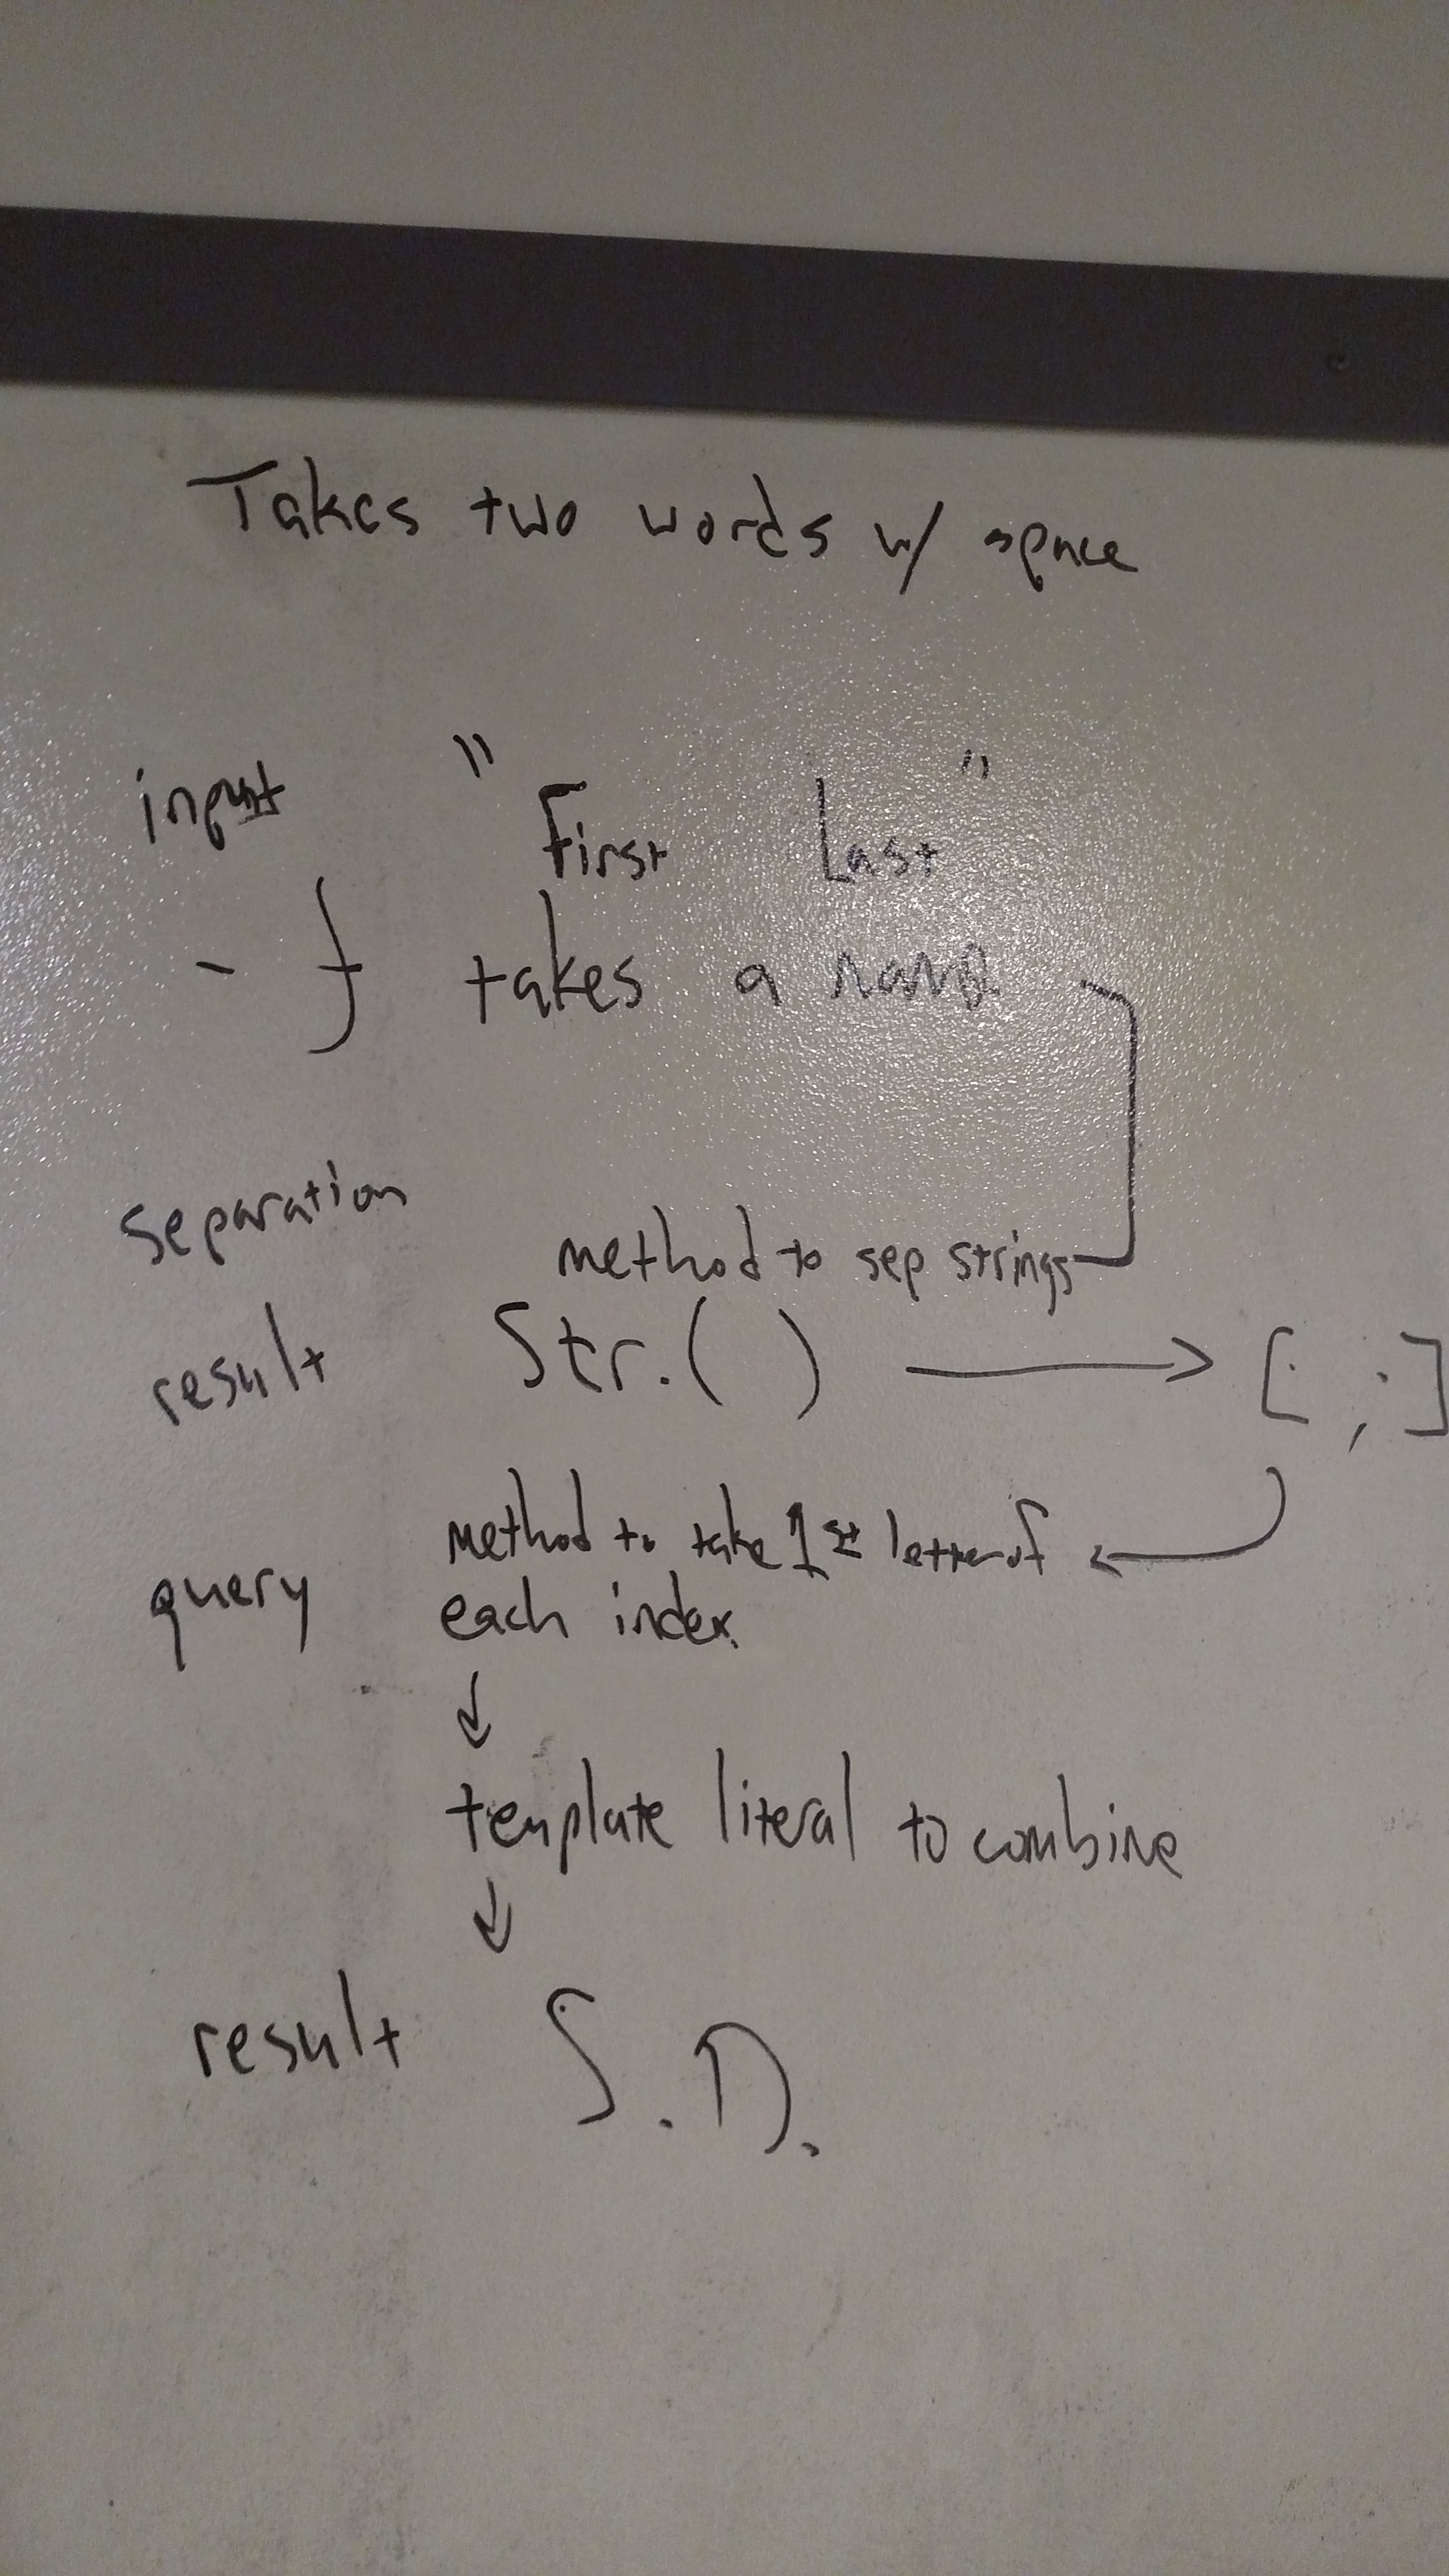 Takes two words w/ space
input " First Last "
- f takes a name
separation
method to sep strings
result Str.( ) → [ , ]
method to take 1st letter of
query each index
↓
template literal to combine
↓
result S.D.